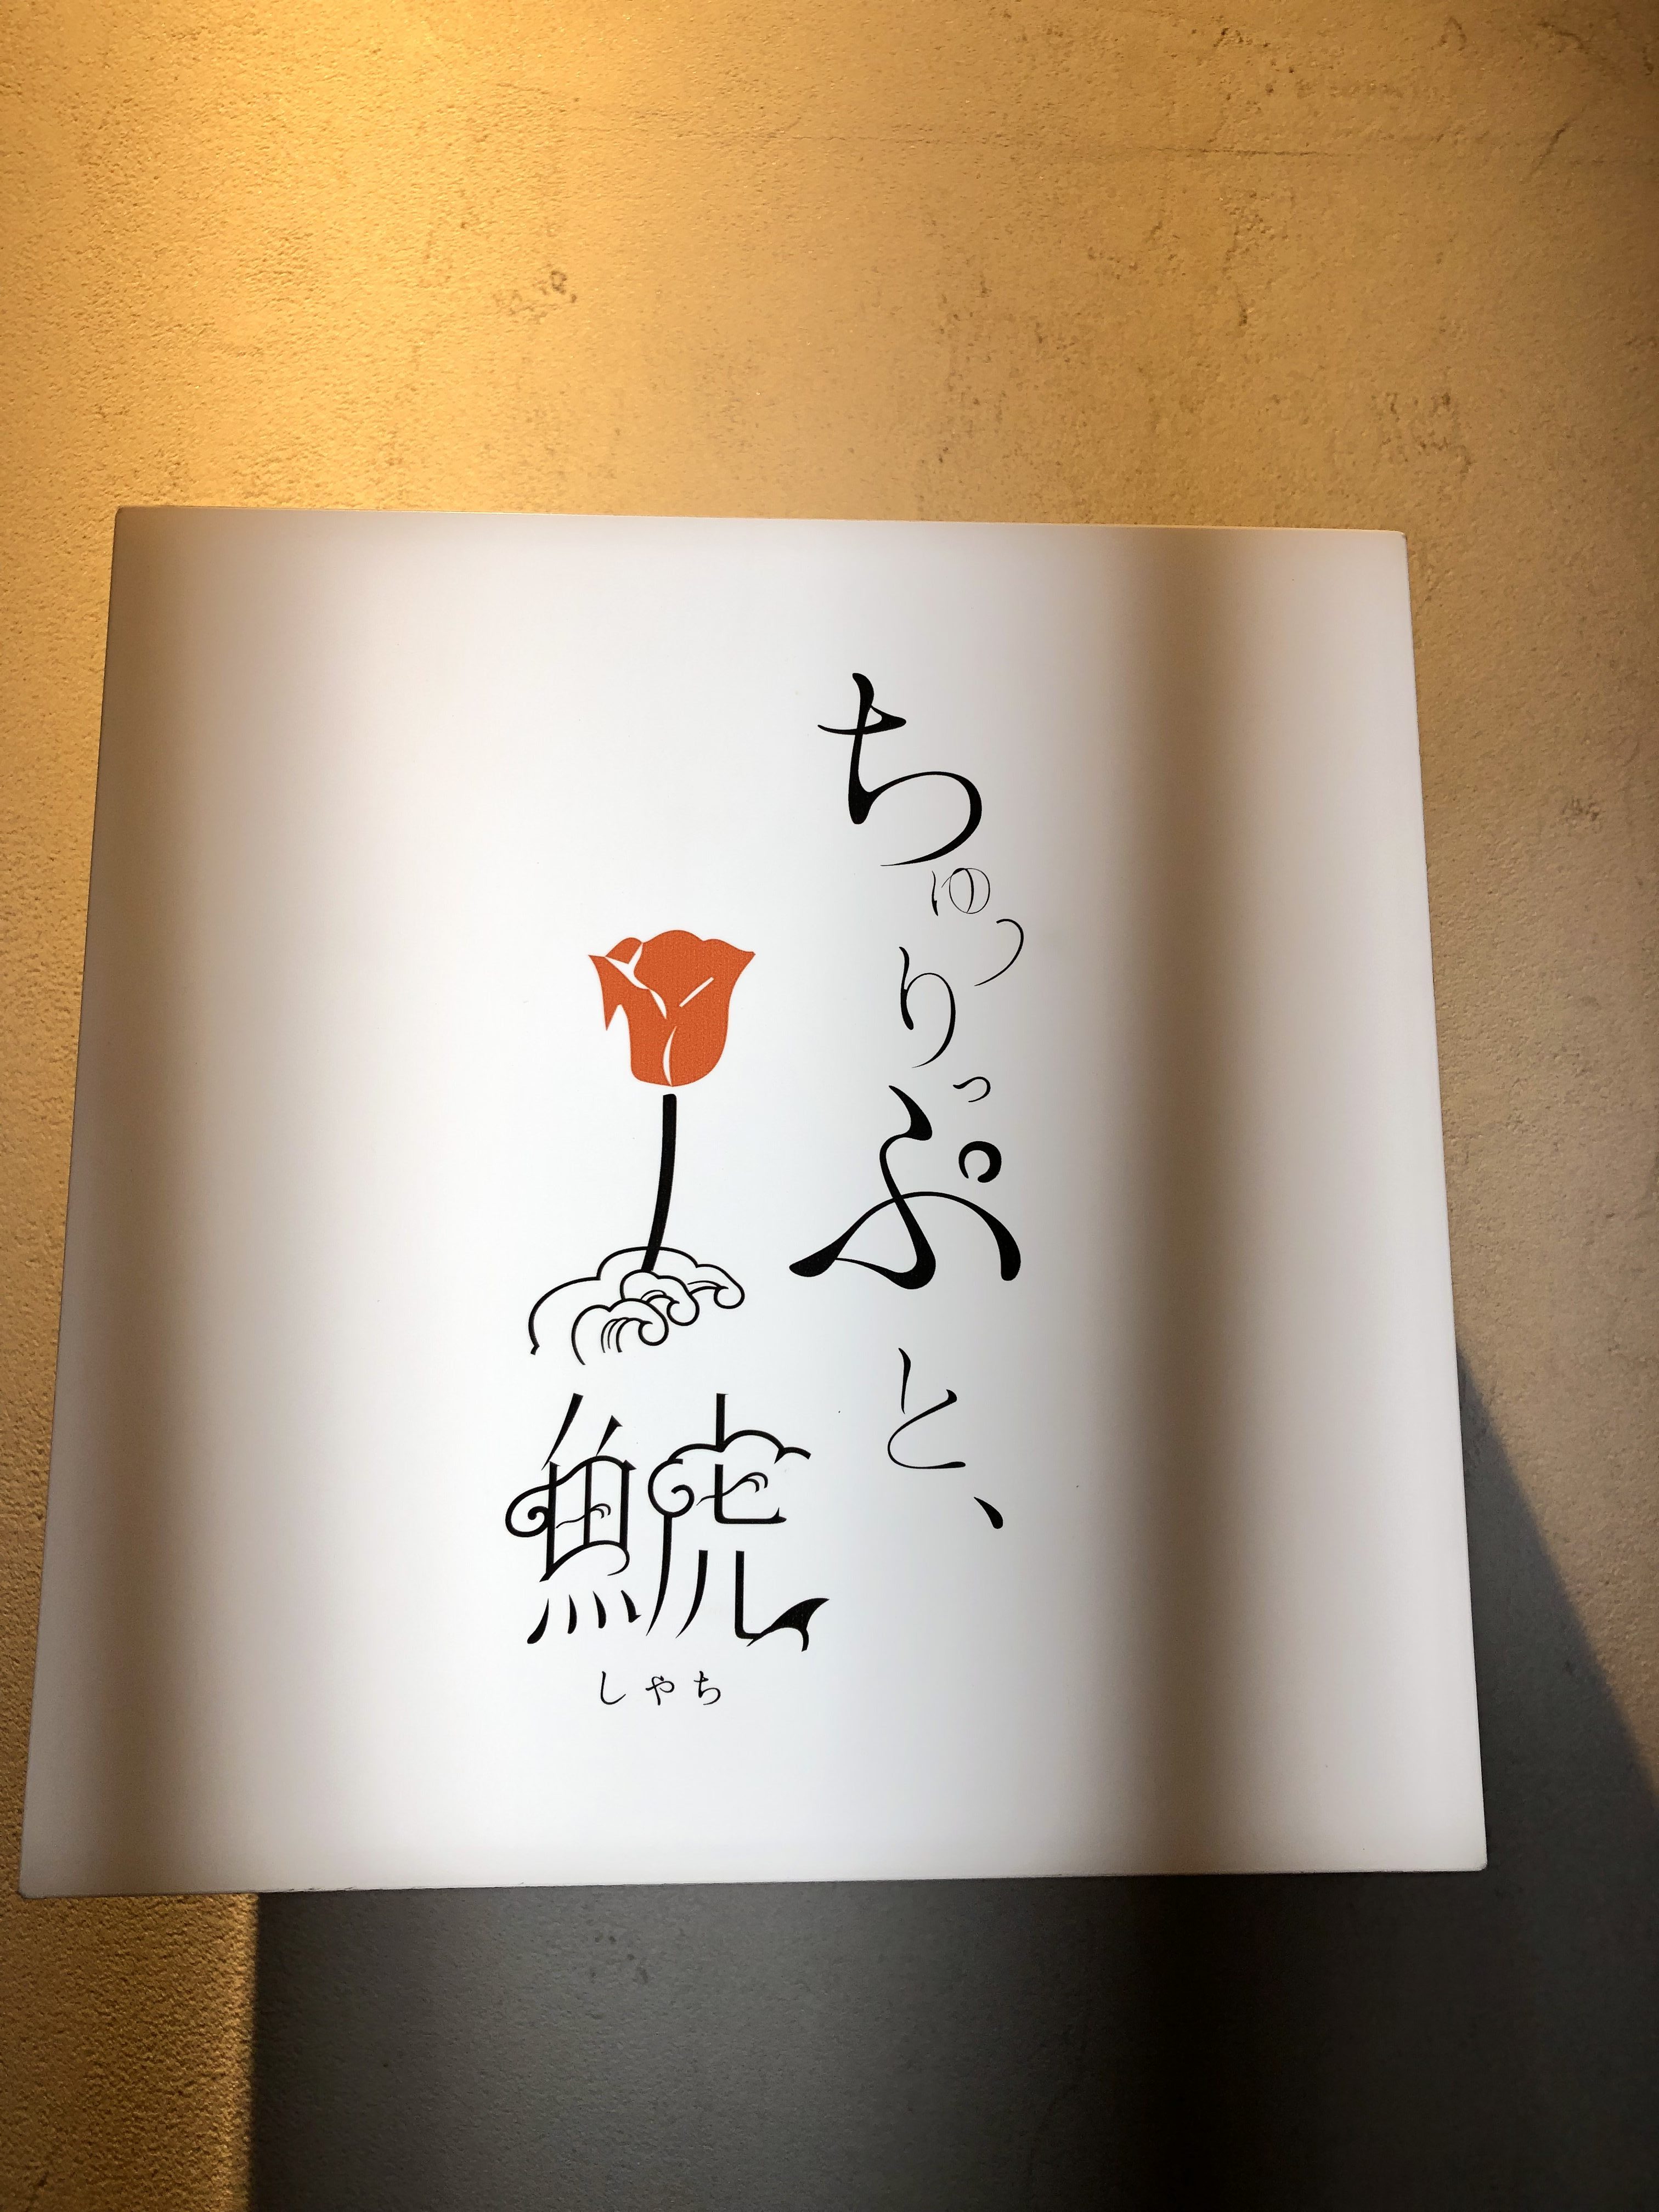 ちゅうりっぷと、
鯱
しやち